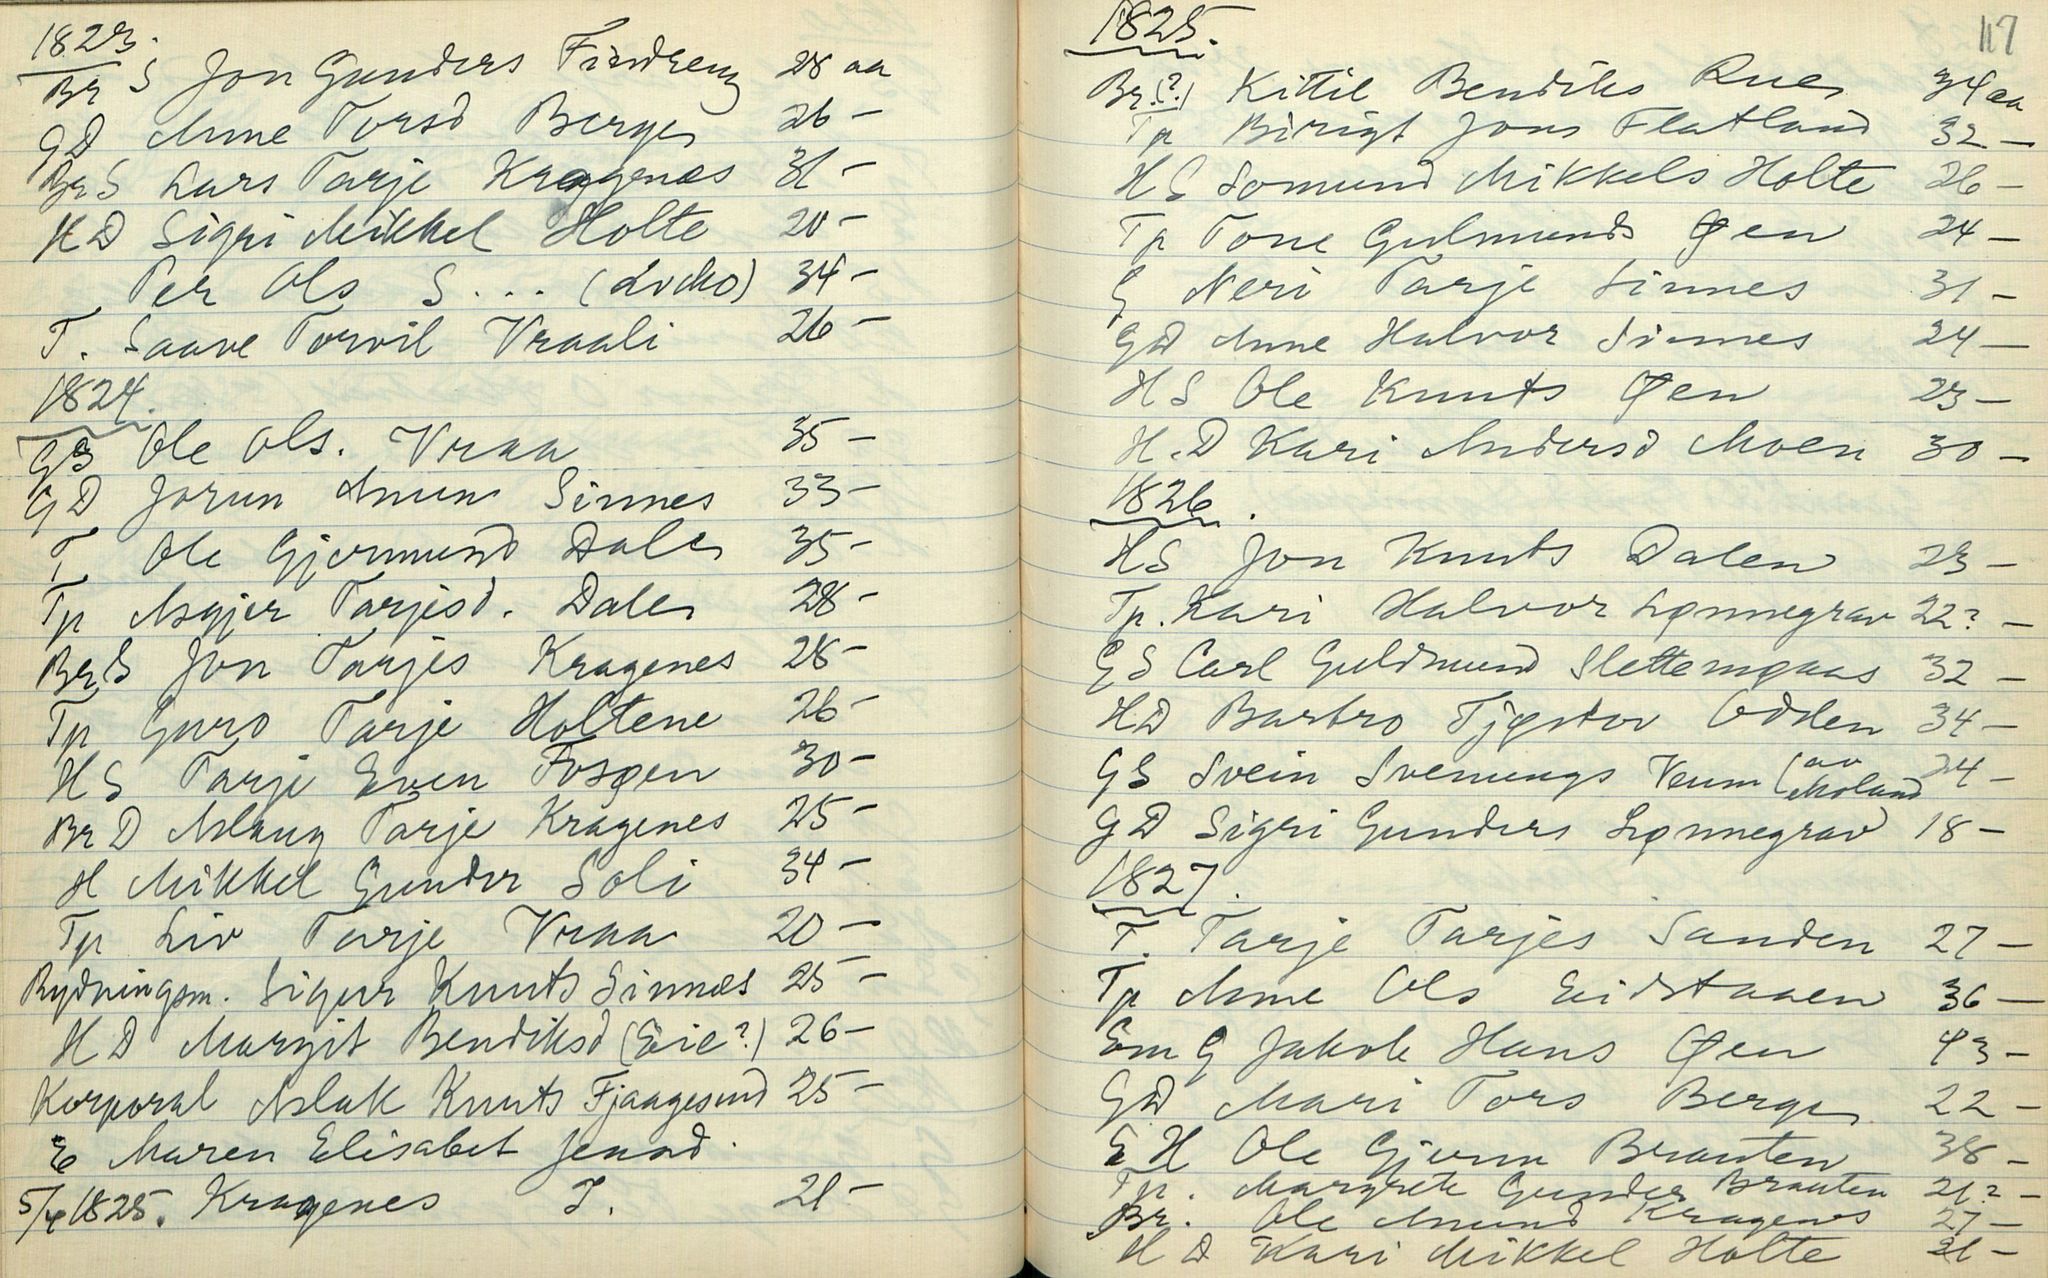 1823.
Br S Jon Gunders 28 aa
G D Anne Torsd Berge 26 –
Br S Lars Tarje Kragenes 31 –
H D Sigri Mikkel Holte 20 –
Per Ols S . . . (Locko) 34 –
T. Saave Torvil Vraali 26 –
1824.
G S Ole Ols. Vraa 35 –
G D Jorun Anun Sinnes 33 –
T Ole Gjermund Dale 35 –
Tp Asgjer Tarjesd. Dale 28 –
Br S Jon Tarjes Kragenes 28 –
Tp Guro Tarje Holtene 26 –
H S Tarje Even Fosøen 30 –
Br D Aslaug Tarje Kragenes 25 –
H Mikkel Gunder Soli 34 –
Tp Liv Tarje Vraa 20 –
Rydningsm. Sigur Knuts Sinnes 25 –
H D Margit Bendiksd (Eie?) 26 –
Korporal Aslak Knuts Fjaagesund 25 –
E Maren Elisabet Jensd.
5/4 1825. Kragenes T. 21 –
117
1825.
Br (?) Kittil Bendiks Rue 34 aa
Tp Birigt Jons Flatland 32 –
H S Somund Mikkels Holte 26 –
Tp Tone Gulmunds Øen 24 –
G Neri Tarje Sinnes 31 –
G D Anne Halvor Sinnes 24 –
H S Ole Knuts Øen 23 –
H. D Kari Andersd Moen 30 –
1826.
H S Jon Knuts Dalen 23 –
Tp. Kari Halvor Lønnegrav 22? –
G S Carl Guldmund Slettemøaas 32 –
H D Barbro Tjøstov Odden 34 –
G S Svein Svenungs Veum (av Moland 24 –
G D Sigri Gunders Lønnegrav 18 –
1827.
T. Tarje Tarjes Sanden 27 –
Tp Anne Ols Eidstaaen 36 –
Em G Jakob Hans Øen 43 –
G D Mari Tors Berge 22 –
E H Ole Gjerm Brauten 38 –
Tp. Margrete Gunder Brauten 21? –
Br. Ole Anund Kragenes 27 –
H D Kari Mikkel Holte 21 –